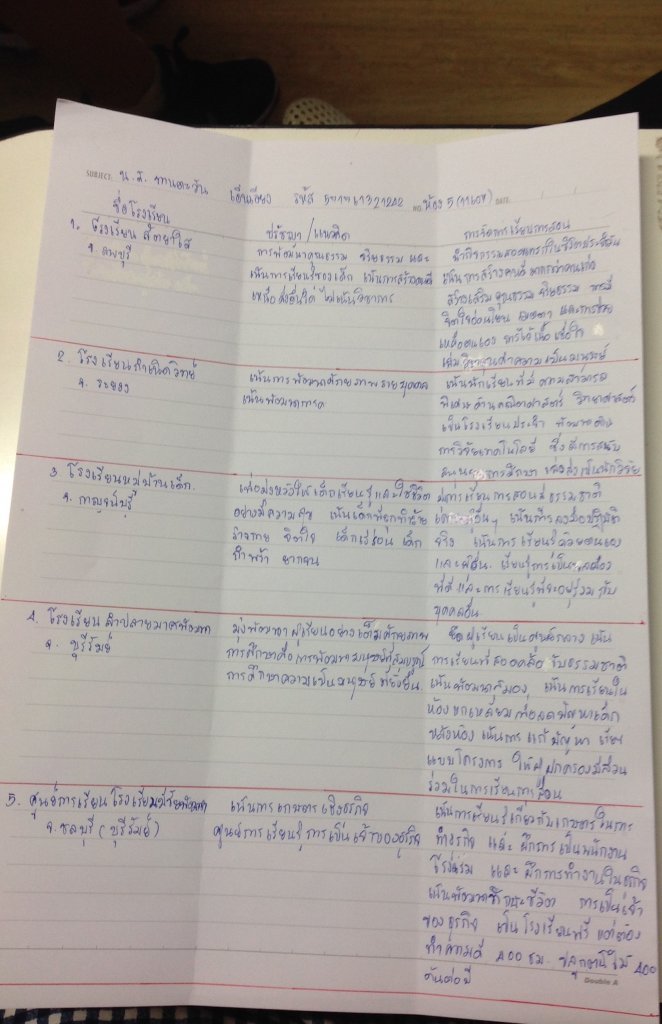 SUBJECT: น.ส. ทานตะวัน เอี่ยมเอี่ยง รหัส NO. ห้อง 5 DATE
ชื่อโรงเรียน
ปรัชญา/แนวคิด
การจัดการเรียนการสอน
1. โรงเรียน สัตยาไส
จ. ลพบุรี
การพัฒนาคุณธรรม จริยธรรม และ
เน้นการเรียนรู้ของเด็ก เน้นการสร้างคนดี
เหนือสิ่งอื่นใด ไม่เน้นวิชาการ
นำกิจกรรมสอดแทรกในชีวิตประจำวัน
เน้นการสร้างคนดี มากกว่าคนเก่ง
สร้างเสริม คุณธรรม จริยธรรม
จิตใจอ่อนโยน เมตตา และการช่วย
เหลือตนเอง
คุณค่าความเป็นมนุษย์
2. โรงเรียนกำเนิดวิทย์
จ. ระยอง
เน้นการพัฒนาศักยภาพรายบุคคล
เน้นพัฒนา
เน้นนักเรียนที่มี ความสามารถ
พิเศษด้านคณิตศาสตร์ วิทยาศาสตร์
เป็นโรงเรียนประจำ พัฒนาด้าน
การวิจัยเทคโนโลยี ซึ่งมีการสนับ
สนุนทุนการศึกษา เพื่อส่งเป็นนักวิจัย
3. โรงเรียนหมู่บ้านเด็ก.
จ. กาญจน์บุรี
เพื่อมุ่งหวังให้เด็กเรียนรู้และใช้ชีวิต
อย่างมีความสุข เน้นเด็กที่ถูกทำร้าย
ร่างกาย จิตใจ เด็กเร่ร่อน เด็ก
กำพร้า ยากจน
มีการเรียนการสอนที่ธรรมชาติ
เน้นที่ลงมือปฏิบัติ
จริง เน้นการเรียนรู้ด้วยตนเอง
และผู้อื่น. เรียนรู้การเป็นพลเมือง
ที่ดี และการเรียนรู้ที่จะอยู่ร่วมกับ
บุคคลอื่น
4. โรงเรียน ลำปลายมาศพัฒนา
จ. บุรีรัมย์
มุ่งพัฒนาผู้เรียนอย่างเต็มศักยภาพ
การศึกษาคือการพัฒนามนุษย์ที่สมบูรณ์
การศึกษาความเป็นมนุษย์ที่ยั่งยืน
ยึดผู้เรียนเป็นศูนย์กลาง เน้น
การเรียนที่สอดคล้องกับธรรมชาติ
เน้นพัฒนาสมอง เน้นการเรียนใน
ห้องหกเหลี่ยมเพื่อลดปัญหาเด็ก
หลังห้อง เน้นการ แก้ปัญหา เรียน
แบบโครงการ ให้ผู้ปกครองมีส่วน
ร่วมในการเรียนการสอน
5. ศูนย์การเรียน โรงเรียนมีชัยพัฒนา
จ. ชลบุรี (บุรีรัมย์)
เน้นการเกษตร เชิงธุรกิจ
ศูนย์การเรียนรู้การเป็นเจ้าของธุรกิจ
เน้นการเรียนรู้เกี่ยวกับเกษตร ในการ
ทำธุรกิจ และ ฝึกการเป็นพนักงาน
โรงแรม และ ฝึกการทำงานในธุรกิจ
เน้นพัฒนาทักษะชีวิต การเป็นเจ้า
ของธุรกิจ เป็นโรงเรียนฟรี แต่ต้อง
ทำความดี 400 ชม. ปลูกต้นไม้ 400
ต้นต่อปี
Double A